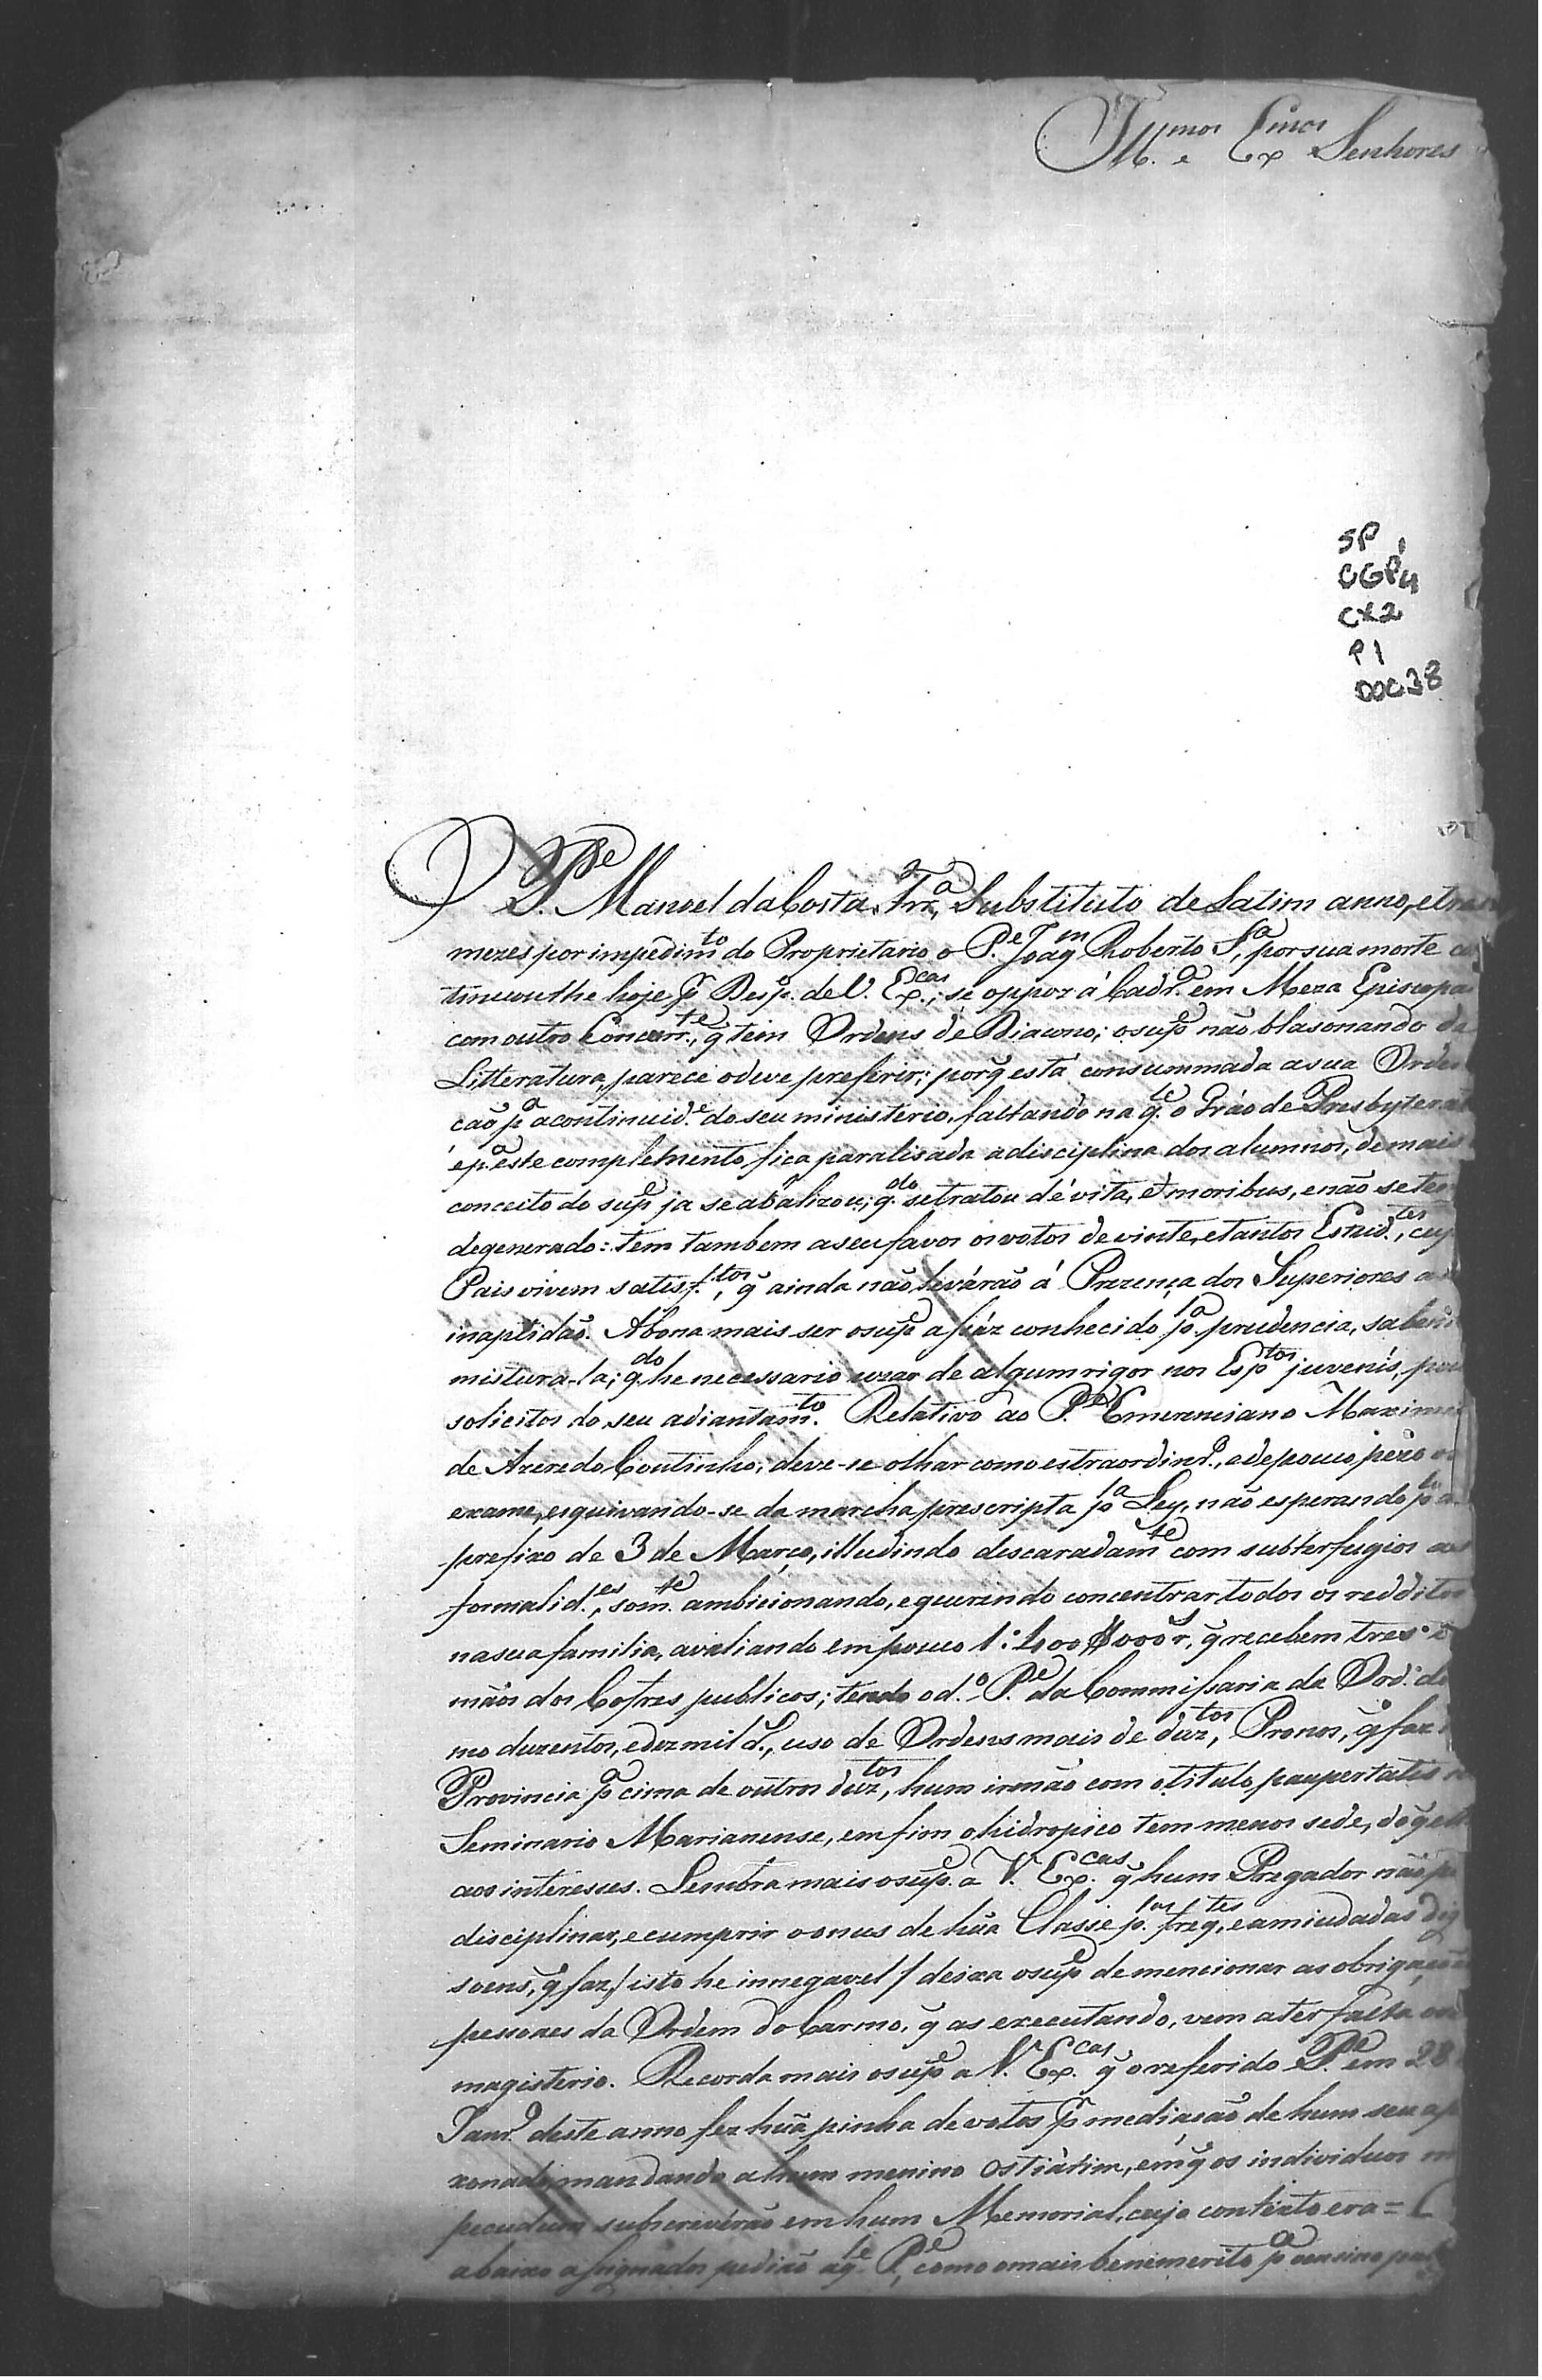 Ill.mos e Ex.mos Senhores
SP 1
CGP4
CX2
P1
DOC38
D. P.e Manoel da Costa Frr.a, Substituto de Latim anno, e
mezes por impedim.to do Proprietario o P.e Joaq.m Roberto S.a, por sua morte
hoje p.r Desp.o de V. Ex.cas; se oppor á Cadr.a em Meza
com outro Concurr.te, q̃ tem Ordens de Diacono; o sup.e não blasonando de
Litteratura, parece o deve preferir; porq̃ está consummada a sua
ção p.a a continuid.e do seu ministerio, faltando na q.le o Gráo de
é p.a este complemento, fica paralisada a disciplina dos alumnos, de mais
conceito do sup.e ja se abalizou; q.do se tratou dé vita, et moribus, e não se
degenerado: tem tambem a seu favor os votos de vinte, e tantos Estud.tes,
Pais vivem satisf.tos, q̃ ainda não levárão á Prezença dos Superiores
inaptidão. Abona mais ser o sup.e assáz conhecido p.la prudencia,
mistura-la; q.do he necessario uzar de algum rigor nos Esp.tos juvenís,
solicitos do seu adiantam.to. Relativo ao P.e Emerenciano
de Azeredo Coutinho; deve-se olhar como estraordinr.o, e de pouco pezo
exame, esquivando-se da marcha prescripta p.la Ley, não esperando
prefixo de 3 de Março, illudindo descaradam.te com subterfugios
formalid.es, som.te ambicionando, e querendo concentrar todos os redditos
na sua familia, avaliando em pouco 1:400$000 r.s, q̃ recebem tres
mãos dos Cofres publicos; tendo o d.o P.e da Commissaria da Ord.
mo duzentos, e dez mil r.s, uso de Ordens mais de duz.tos, Pronos, q̃ faz
Provincia p.a cima de outros duz.tos, hum irmão com o titulo paupertatis
Seminario Marianense, em fim o hidropico tem menos sede, do q̃
aos interesses. Lembra mais o sup.e a V. Ex.cas q̃ hum Pregador não
disciplinar, e cumprir o onus de húa Classe p.las freq.tes, e amiudadas
soens, q̃ faz / isto he innegavel / deixa o sup.e de mencionar as
pessoaes da Ordem do Carmo, q̃ as executando, vem a ter falta
magisterio. Recorda mais o sup.e a V. Ex.cas q̃ o referido P.e em 28
Janr.o deste anno fez húa pinha de votos p.r mediação de hum seu
xonado, mandando a hum menino Ostiàtim, em q̃ os individuos
pecudum subscrevérão em hum Memorial, cujo contexto era =
abaixo assignados pedião aq.le P.e, como o mais benemerito p.a o ensino